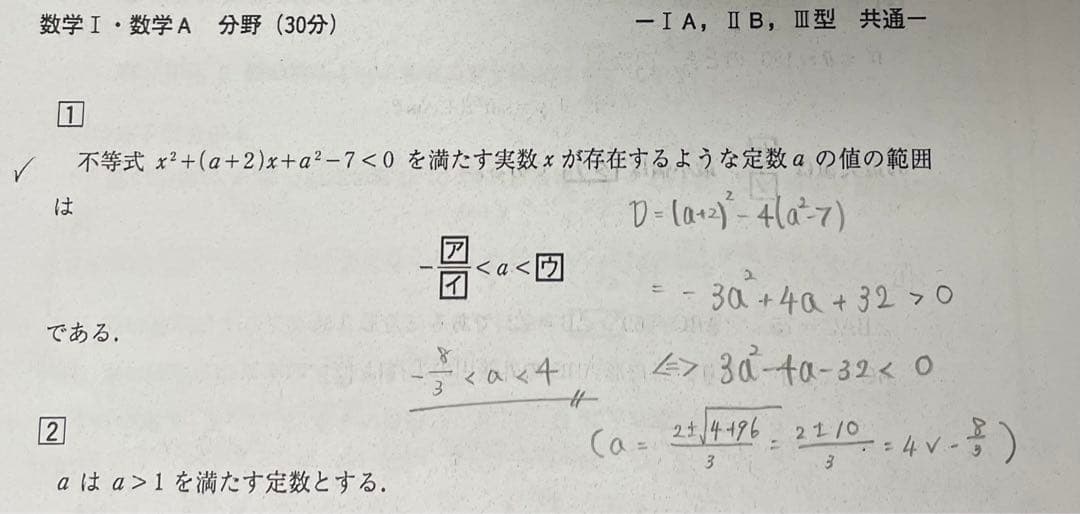 数学Ⅰ・数学A 分野（30分） －ⅠA，ⅡB，Ⅲ型 共通－
1
不等式 x²+(a+2)x+a²-7<0 を満たす実数 x が存在するような定数 a の値の範囲
は
D=(a+2)²-4(a²-7)
-ア/イ<a<ウ
= -3a²+4a+32>0
である．
-8/3<a<4
⇔ 3a²-4a-32<0
2
(a = 2±√4+96/3 = 2±10/3 = 4 ∨ -8/3)
a は a>1 を満たす定数とする．